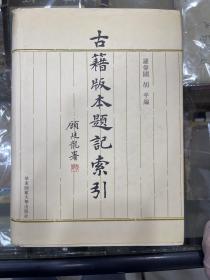 羅偉國 胡平編
古籍版本題記索引
顧廷龍署